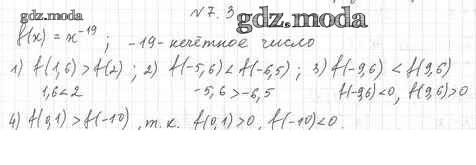 №7.3
gdz.moda gdz.moda
f(x) = x⁻¹⁹; -19 - нечётное число
1) f(1,6) > f(2); 2) f(-5,6) < f(-6,5); 3) f(-9,6) < f(9,6)
1,6 < 2 -5,6 > -6,5 f(-9,6) < 0, f(9,6) > 0
4) f(0,1) > f(-10), т.к. f(0,1) > 0, f(-10) < 0.